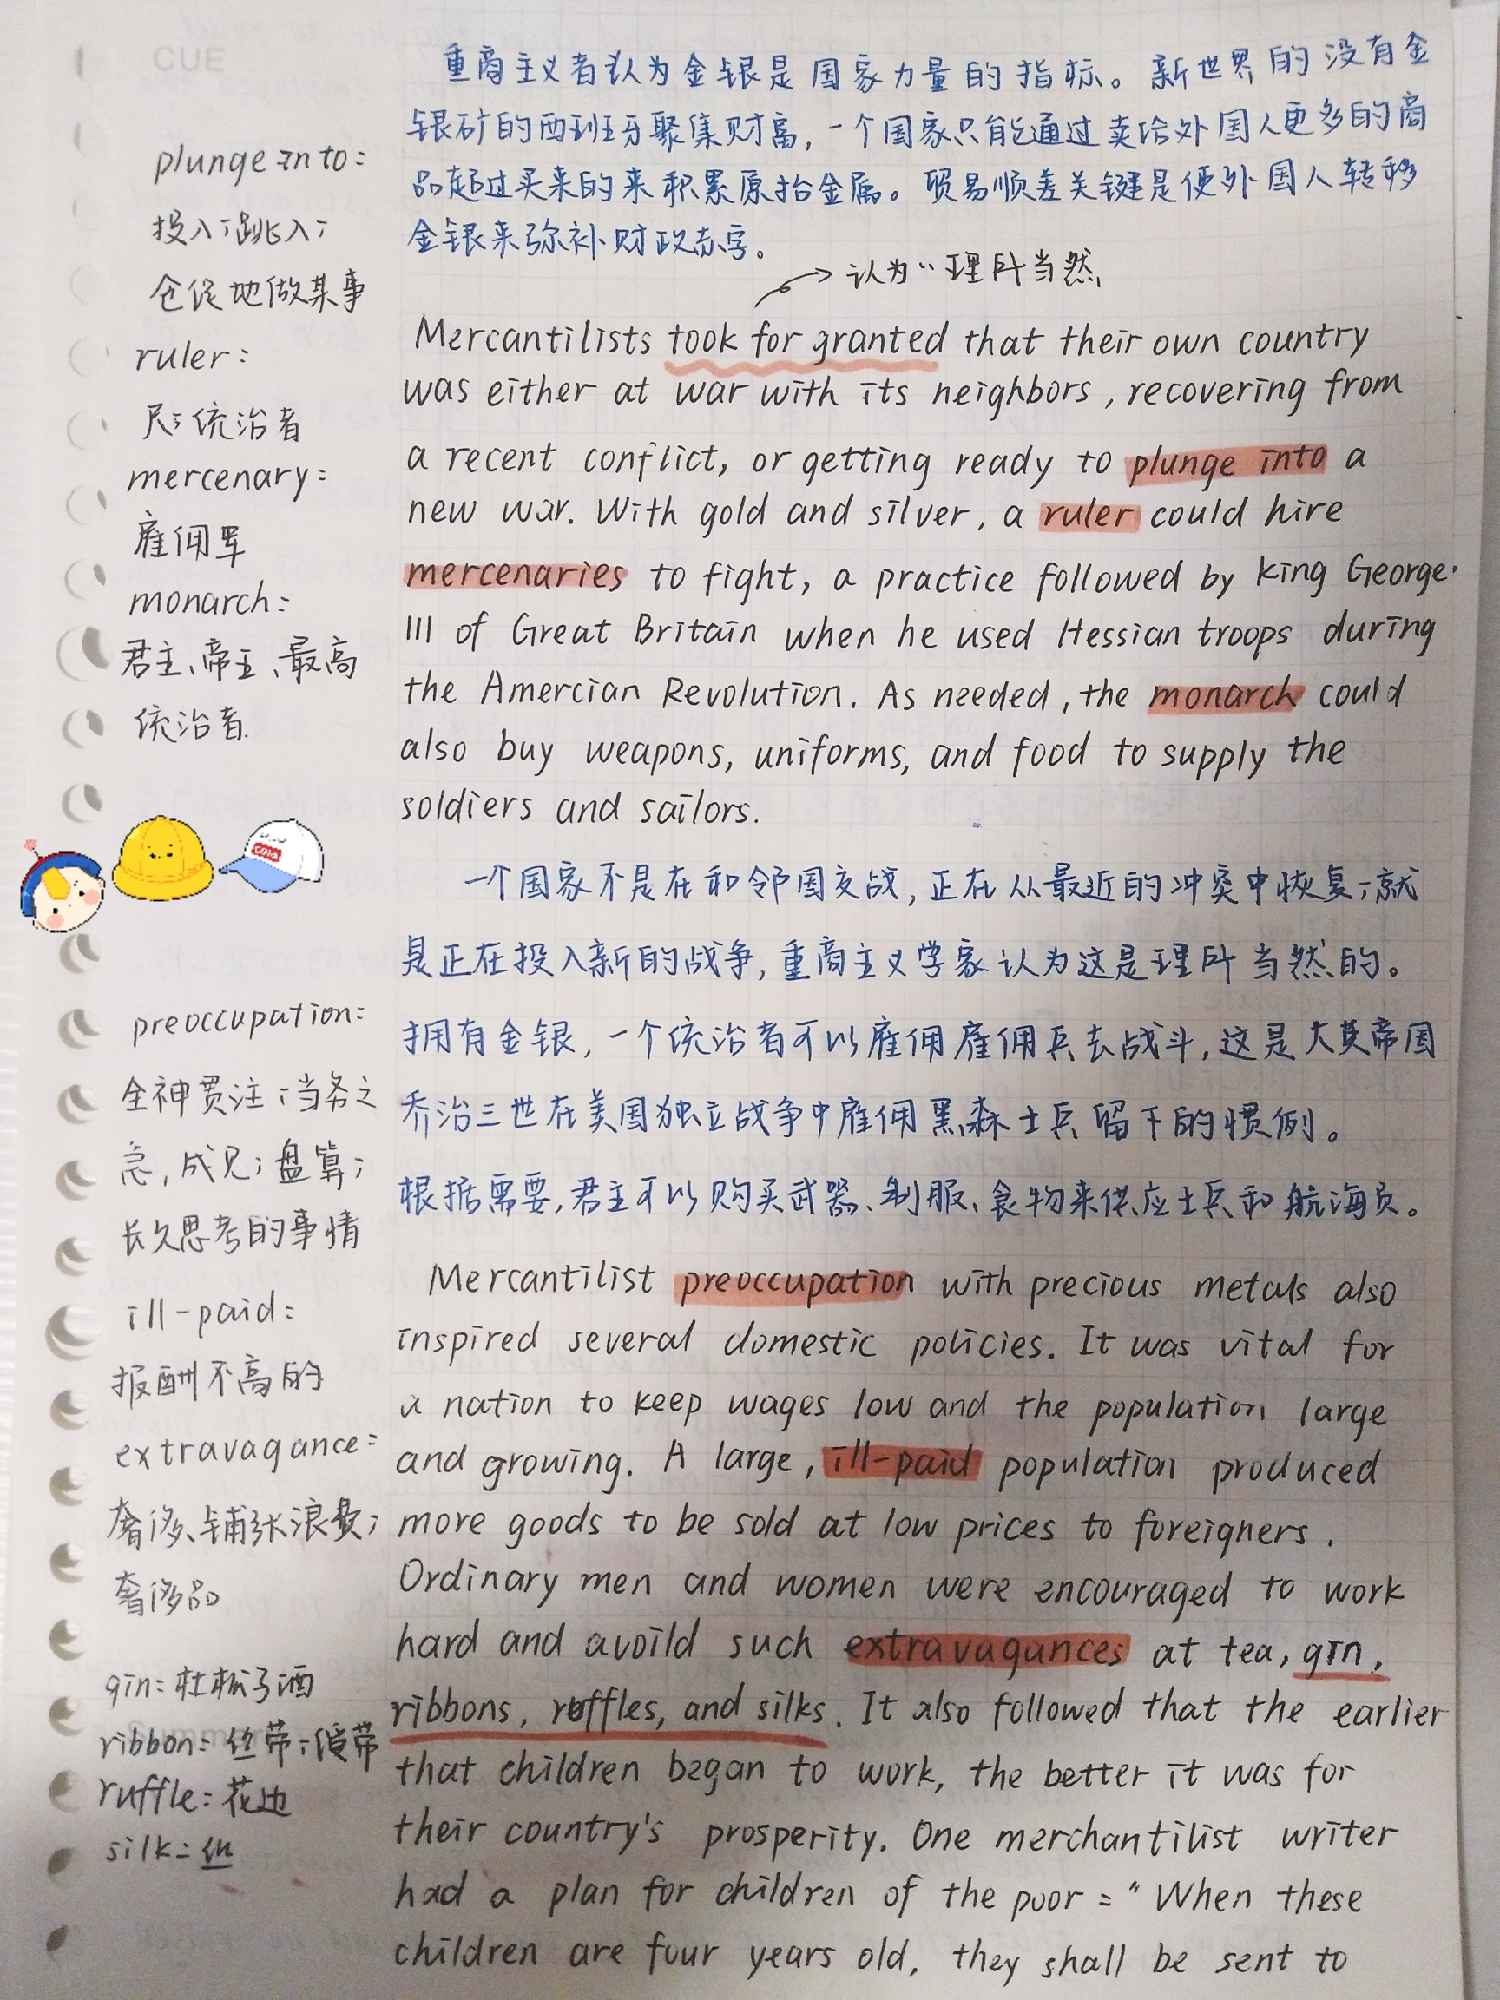 CUE
重商主义者认为金银是国家力量的指标。新世界的没有金
银矿的西班牙聚集财富，一个国家只能通过卖给外国人更多的商
品超过买来的来积累原始金属。贸易顺差关键是使外国人转移
金银来弥补财政赤字。
认为“理所当然
plunge into:
投入；跳入；
仓促地做某事
ruler:
尺；统治者
mercenary:
雇佣军
monarch:
君主、帝王、最高
统治者.
Mercantilists took for granted that their own country
was either at war with its neighbors, recovering from
a recent conflict, or getting ready to plunge into a
new war. With gold and silver, a ruler could hire
mercenaries to fight, a practice followed by king George
III of Great Britain when he used Hessian troops during
the Amercian Revolution. As needed, the monarch could
also buy weapons, uniforms, and food to supply the
soldiers and sailors.
Cola
一个国家不是在和邻国交战，正在从最近的冲突中恢复；就
是正在投入新的战争，重商主义学家认为这是理所当然的。
拥有金银，一个统治者可以雇佣雇佣兵去战斗，这是大英帝国
乔治三世在美国独立战争中雇佣黑森士兵留下的惯例。
根据需要，君主可以购买武器、制服、食物来供应士兵和航海员。
preoccupation:
全神贯注；当务之
急，成见；盘算；
长久思考的事情
ill-paid:
报酬不高的
extravagance:
奢侈、铺张浪费；
奢侈品
gin: 杜松子酒
Summary
ribbon: 丝带；缎带
ruffle: 花边
silk: 丝
Mercantilist preoccupation with precious metals also
inspired several domestic policies. It was vital for
a nation to keep wages low and the population large
and growing. A large, ill-paid population produced
more goods to be sold at low prices to foreigners.
Ordinary men and women were encouraged to work
hard and avoild such extravagances at tea, gin,
ribbons, ruffles, and silks. It also followed that the earlier
that children began to work, the better it was for
their country's prosperity. One merchantilist writer
had a plan for children of the poor: “When these
children are four years old, they shall be sent to